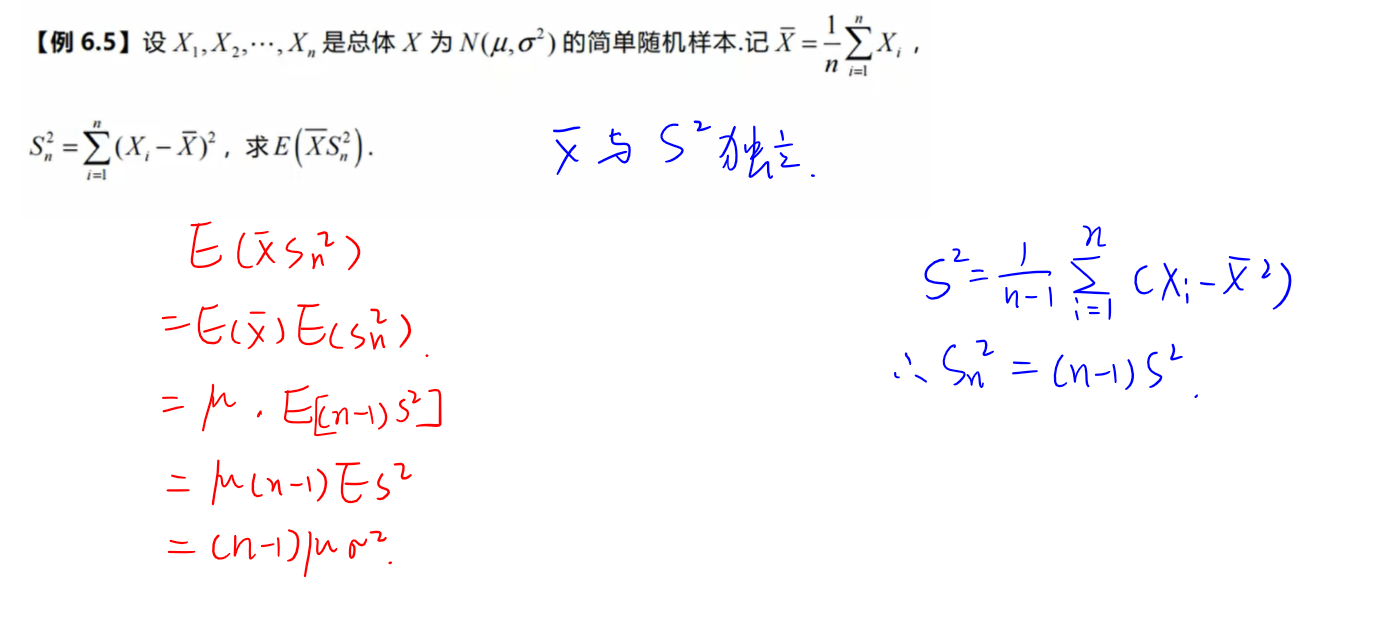 【例 6.5】设 X₁,X₂,⋯,Xₙ 是总体 X 为 N(μ,σ²) 的简单随机样本.记 X̄ = 1/n ∑ᵢ₌₁ⁿ Xᵢ ,
Sₙ² = ∑ᵢ₌₁ⁿ (Xᵢ − X̄)² , 求 E(X̄Sₙ²).
X̄ 与 S² 独立.
E(X̄Sₙ²)
=E(X̄)E(Sₙ²).
= μ . E[(n-1)S²]
= μ(n-1)ES²
= (n-1)μσ².
S² = 1/(n-1) ∑ᵢ₌₁ⁿ (Xᵢ − X̄²)
∴ Sₙ² = (n-1)S².